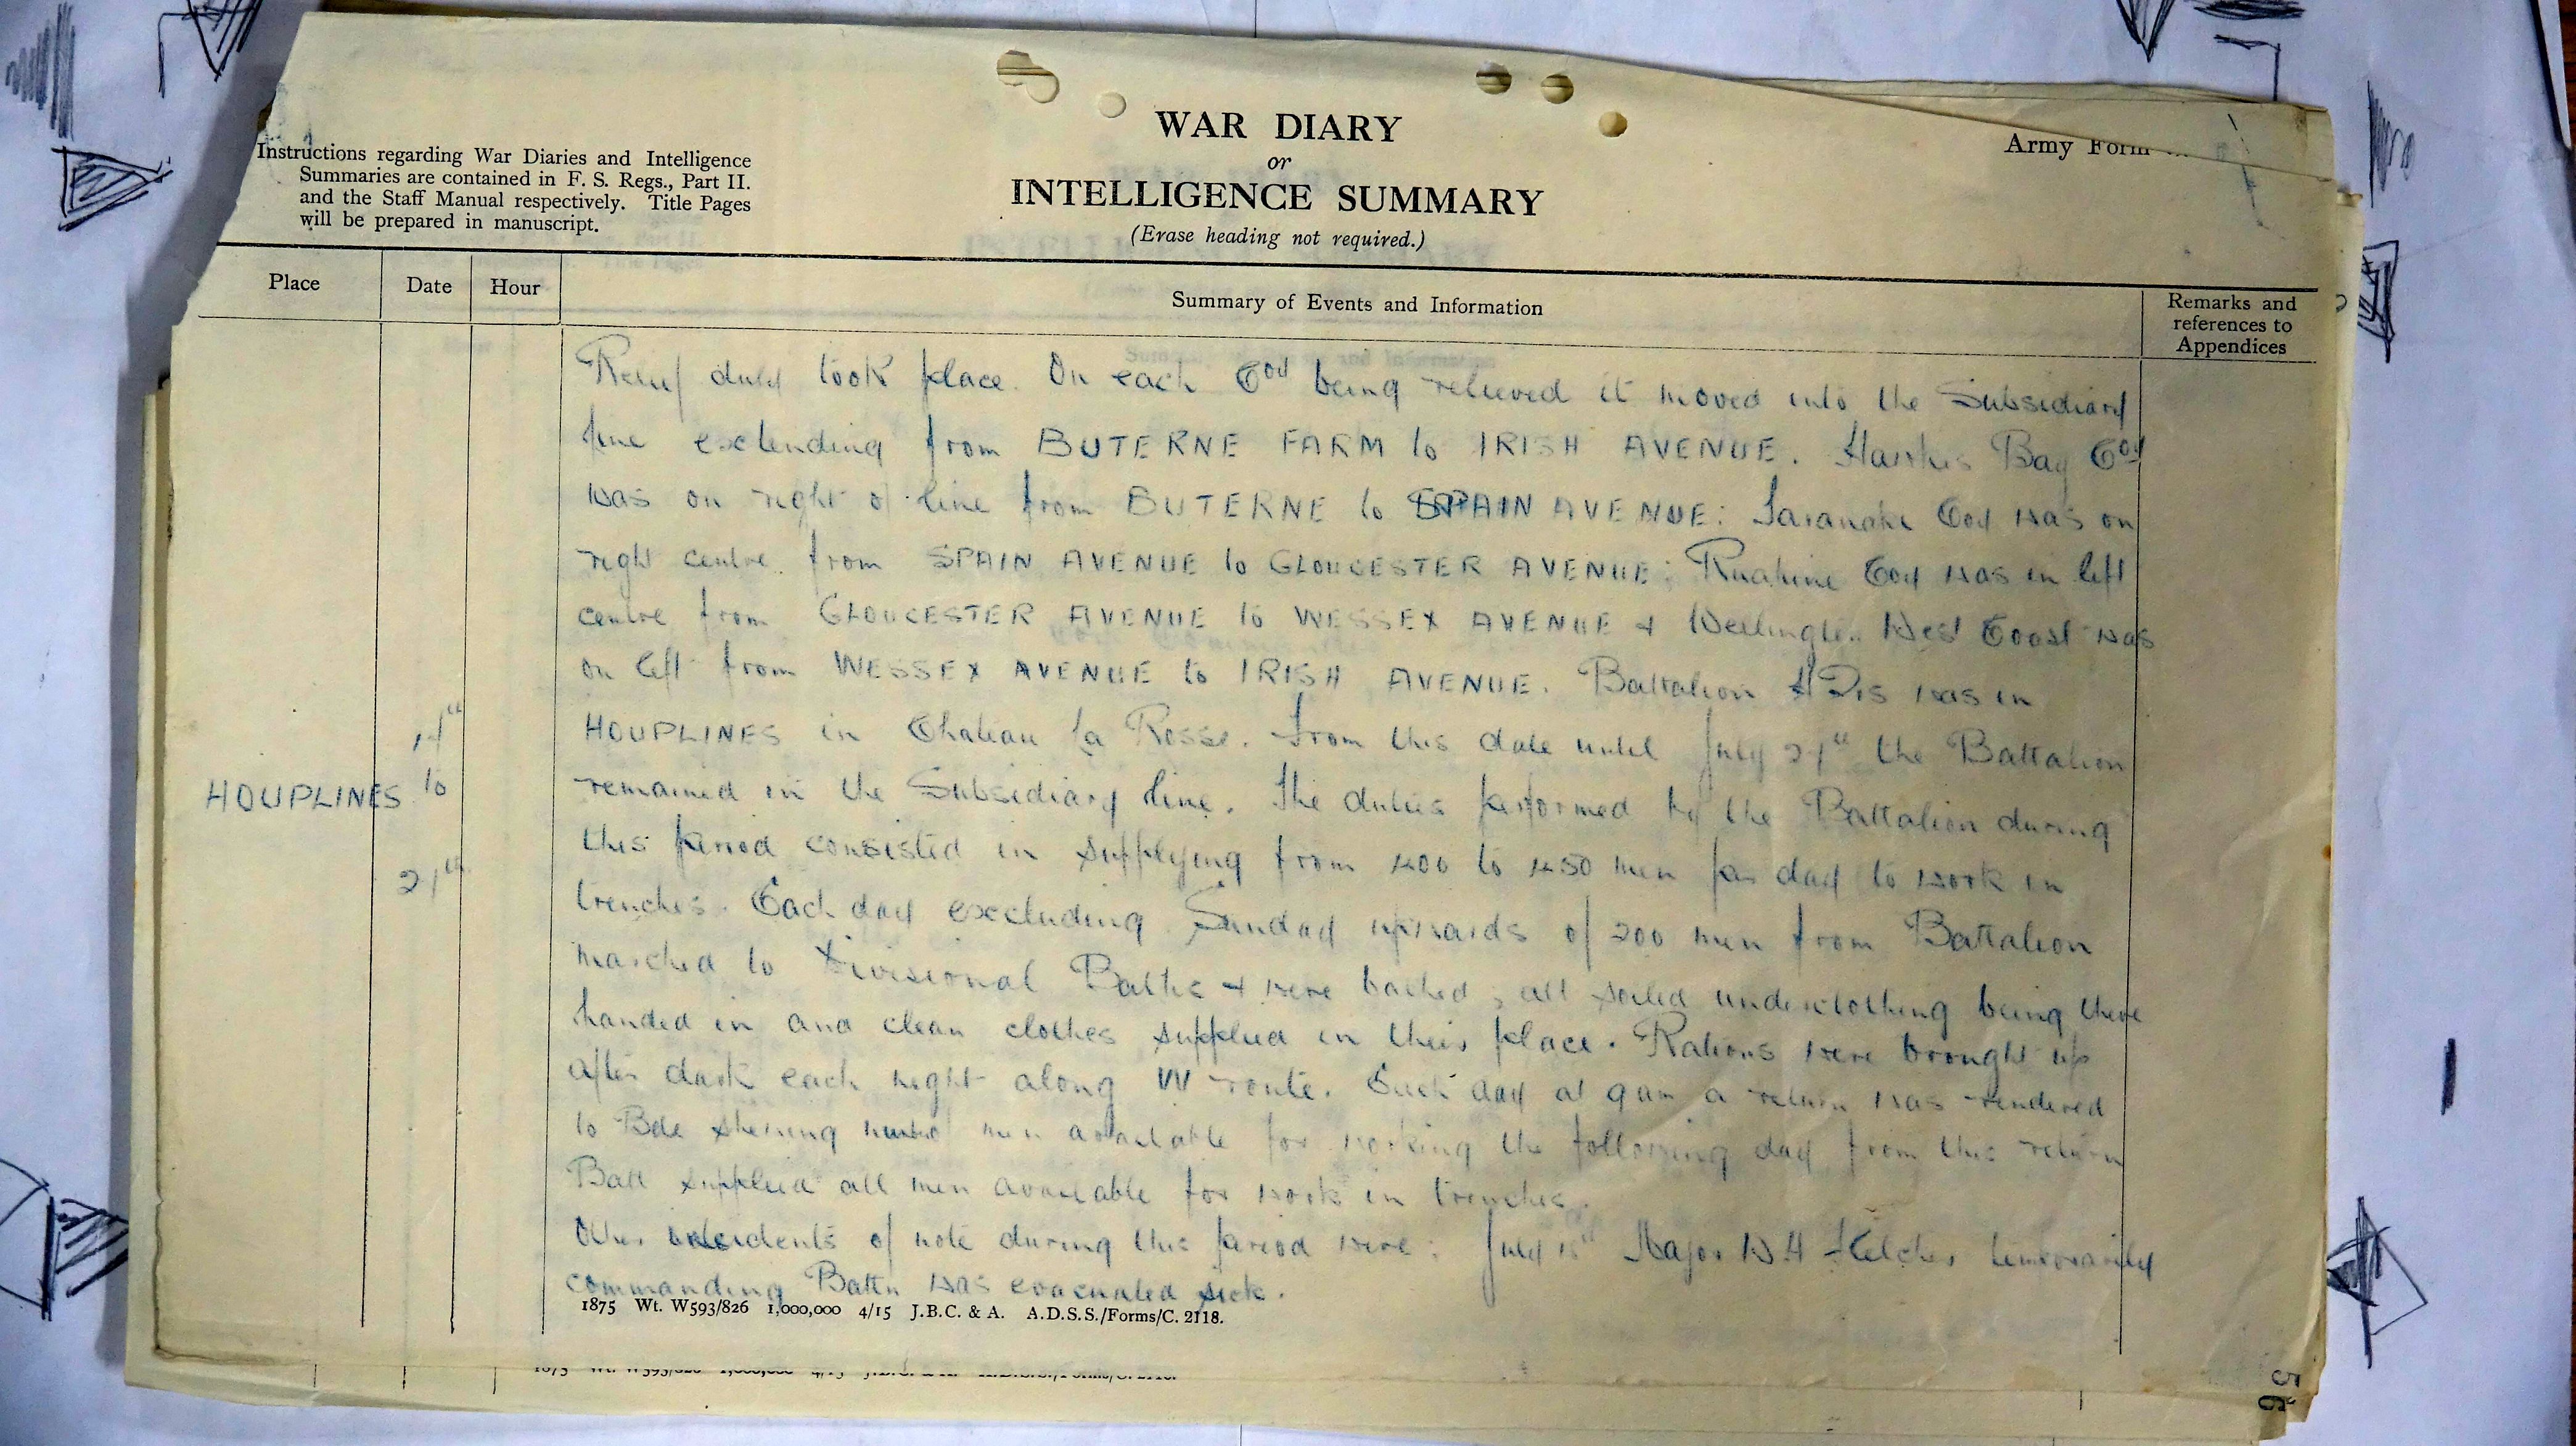 Instructions regarding War Diaries and Intelligence
Summaries are contained in F. S. Regs., Part II.
and the Staff Manual respectively. Title Pages
will be prepared in manuscript.
WAR DIARY
or
INTELLIGENCE SUMMARY
(Erase heading not required.)
Army Form
Place
Date
Hour
Summary of Events and Information
Remarks and
references to
Appendices
Relief duly took place. On each Coy being relieved it moved into the Subsidiary
line extending from BUTERNE FARM to IRISH AVENUE. Hawkes Bay Coy
was on right of line from BUTERNE to SPAIN AVENUE: Taranaki Coy was on
right centre from SPAIN AVENUE to GLOUCESTER AVENUE: Ruahine Coy was in left
centre from GLOUCESTER AVENUE to WESSEX AVENUE & Wellington West Coast was
on left from WESSEX AVENUE to IRISH AVENUE. Battalion HQrs was in
HOUPLINES in Chateau La Rosse. From this date until July 21st the Battalion
remained in the Subsidiary line. The duties performed by the Battalion during
this period consisted in supplying from 400 to 450 men per day to work in
trenches. Each day excluding Sunday upwards of 200 men from Battalion
marched to Divisional Baths & were bathed, all soiled underclothing being there
handed in and clean clothes supplied in their place. Rations were brought up
after dark each night along W route. Each day at 9 am a return was rendered
to Bde showing men available for working the following day from this return
Batt supplied all men available for work in trenches.
Other incidents of note during this period were: July Major W.H Fletcher temporarily
commanding Battn was evacuated sick.
HOUPLINES
to
21st
1875 Wt. W593/826 1,000,000 4/15 J.B.C. & A. A.D.S.S./Forms/C. 2118.
56